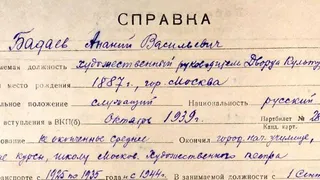 СПРАВКА
Бадаев Ананий Васильевич
емая должность Художественный руководитель Дворца Культур
и место рождения 1887г, гор. Москва
альное положение служащий Национальность русский
вступления в ВКП(б) Октябрь 1939г. Партбилет №
Канд. карт.
не оконченное среднее Окончил город. нач. училище,
е курсы, школу Москов. Художественного театра
с 1925 по 1935 г с 1944г. В занимаемой должности с 1 Сент